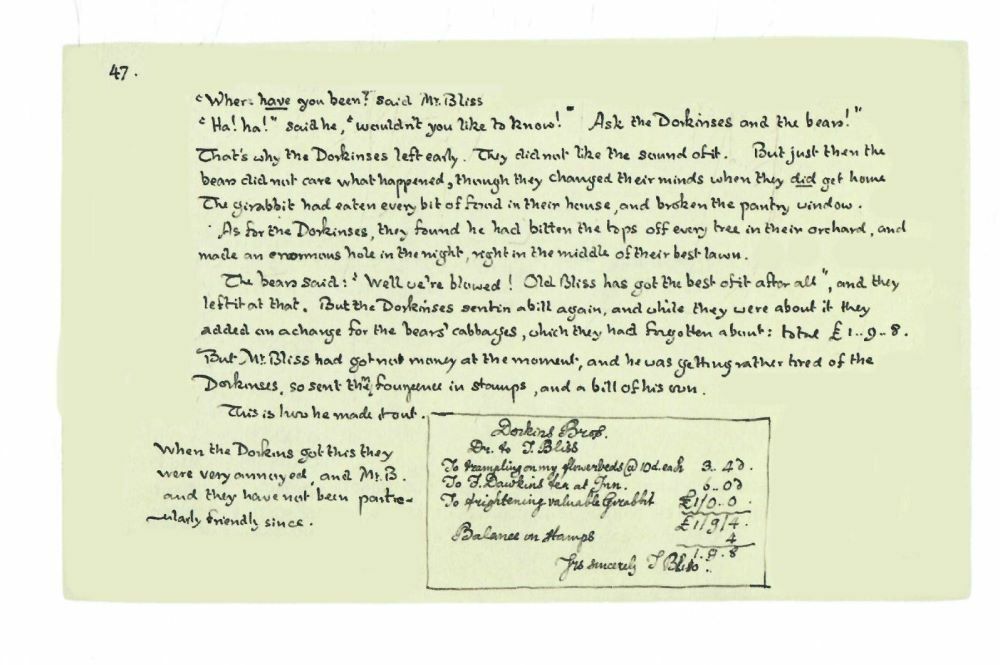 47.
"Where have you been? said Mr. Bliss
"Ha! ha!" said he, "wouldn't you like to know!" Ask the Dorkinses and the bears!"
That's why the Dorkinses left early. They did not like the sound of it. But just then the
bears did not care what happened, though they changed their minds when they did get home
The girabbit had eaten every bit of food in their house, and broken the pantry window.
As for the Dorkinses, they found he had bitten the tops off every tree in their orchard, and
made an enormous hole in the night, right in the middle of their best lawn.
The bears said: "Well we're blowed! Old Bliss has got the best of it after all", and they
left it at that. But the Dorkinses sent in a bill again, and while they were about it they
added on a charge for the bears' cabbages, which they had forgotten about: total £1..9..8.
But Mr. Bliss had got not money at the moment, and he was getting rather tired of the
Dorkinses, so sent them fourpence in stamps, and a bill of his own.
This is how he made it out.
When the Dorkins got this they
were very annoyed, and Mr. B.
and they have not been partic-
ularly friendly since.
Dorkins Bros.
Dr. to J. Bliss
To trampling on my flowerbeds @ 10d. each 3..4d.
To F. Dawkins tea at Inn. 6..0d
To frightening valuable Girabbit £1/0..0.
£1/9/4.
Balance in stamps 4
1.9.8
Yrs sincerely J Bliss.